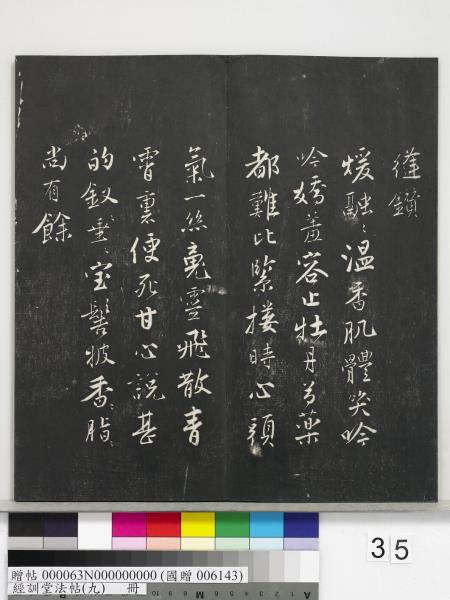 縫鎖
煖融融溫香肌體笑吟
吟嬌羞容止牡丹芍藥
都難比緊摟時心頭
氣一絲亮靈飛散青
霄裏便死甘心說甚
的釵垂垂寶髻披香香脂脂
尚有餘
35
贈帖 000063N000000000 (國贈 006143)
經訓堂法帖(九) 冊